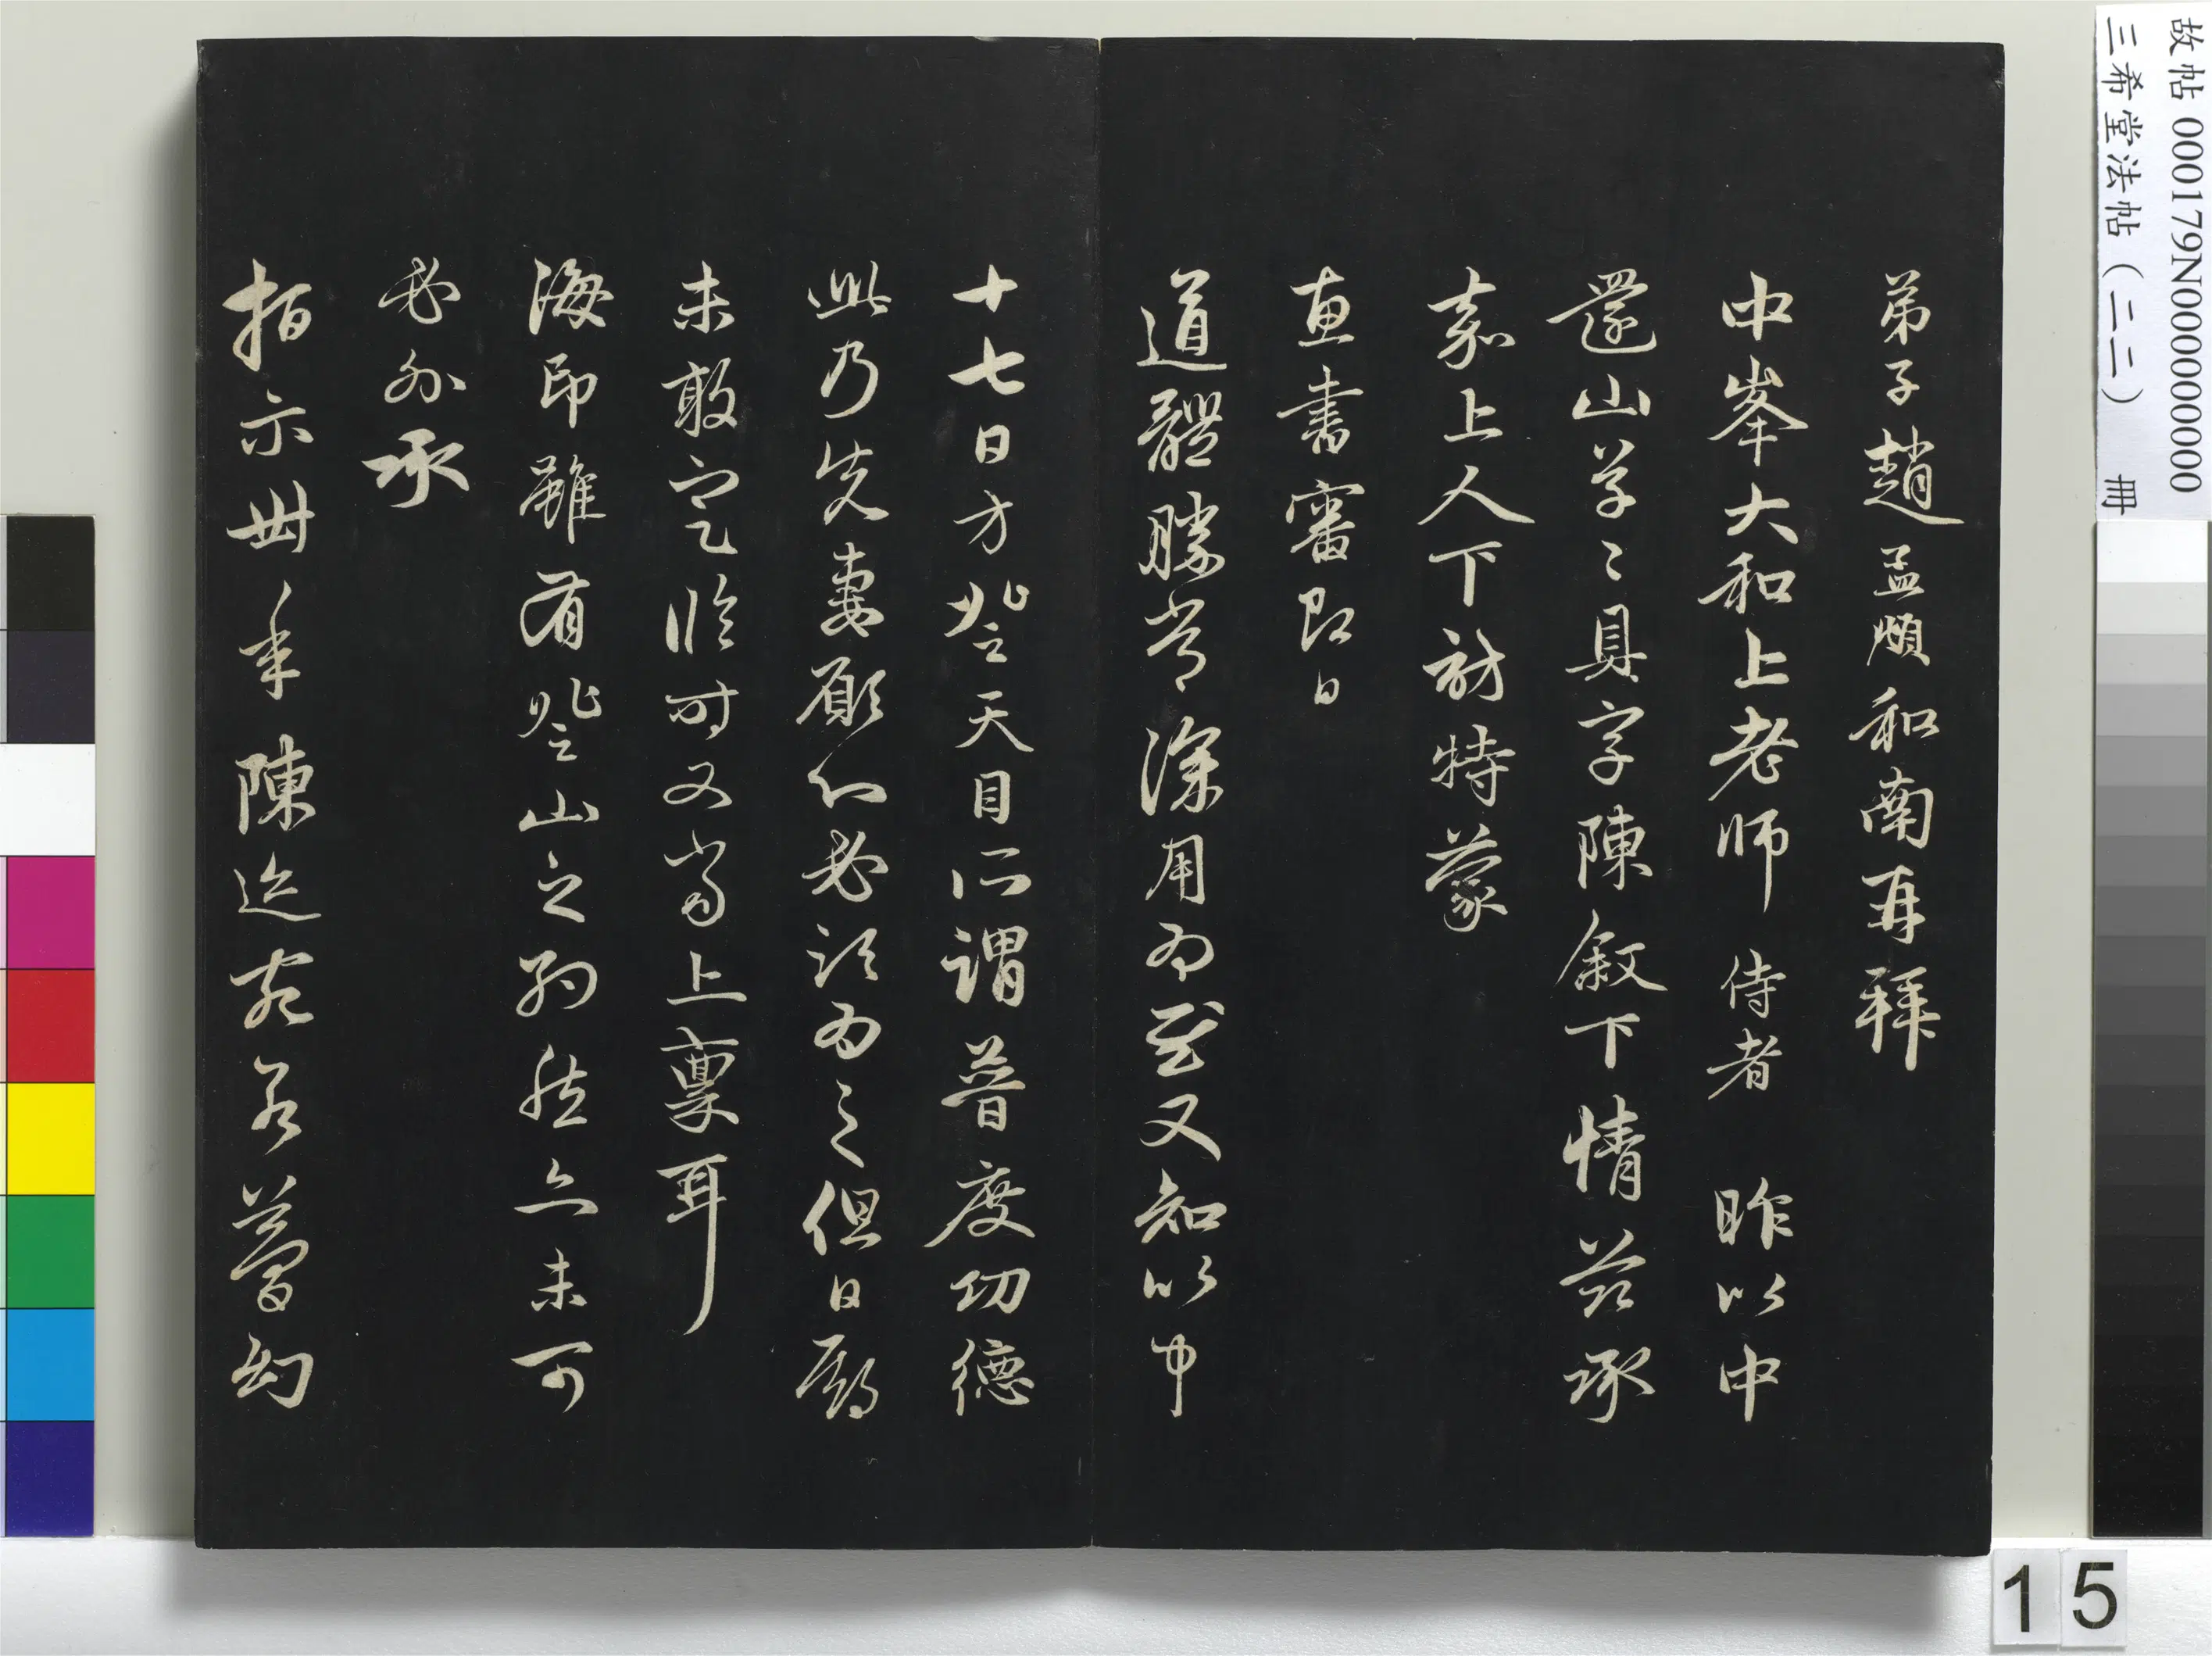 故帖 000179N000000000
三希堂法帖（二二） 冊
弟子趙孟頫和南再拜
中峯大和上老師 侍者 昨以中
還山草〻具字陳敘下情茲承
嘉上人下訪特蒙
惠書審即日
道體勝常深用為慰又知以中
十七日方登天目所謂普度功德
此乃先妻願心必須為之但日
未敢定臨時又當上稟耳
海印雖有登山之約然亦未可
必外承
指示卅年陳迹宛若夢幻
15